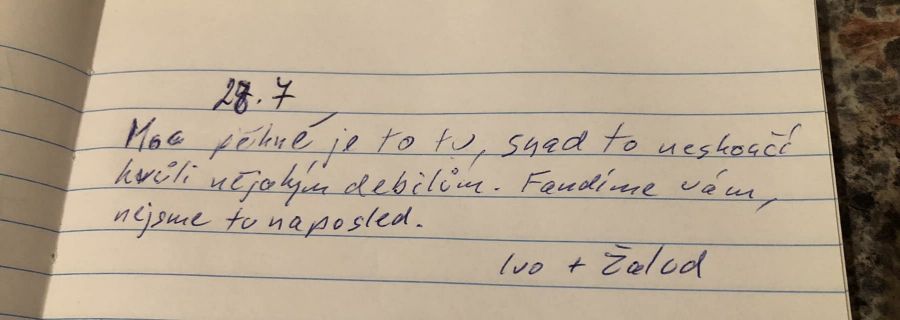 28.7
Moc pěkné je to tu, snad to neskončí
kvůli nějakým debilům. Fandíme vám,
nejsme tu naposled.
Ivo + Žalud